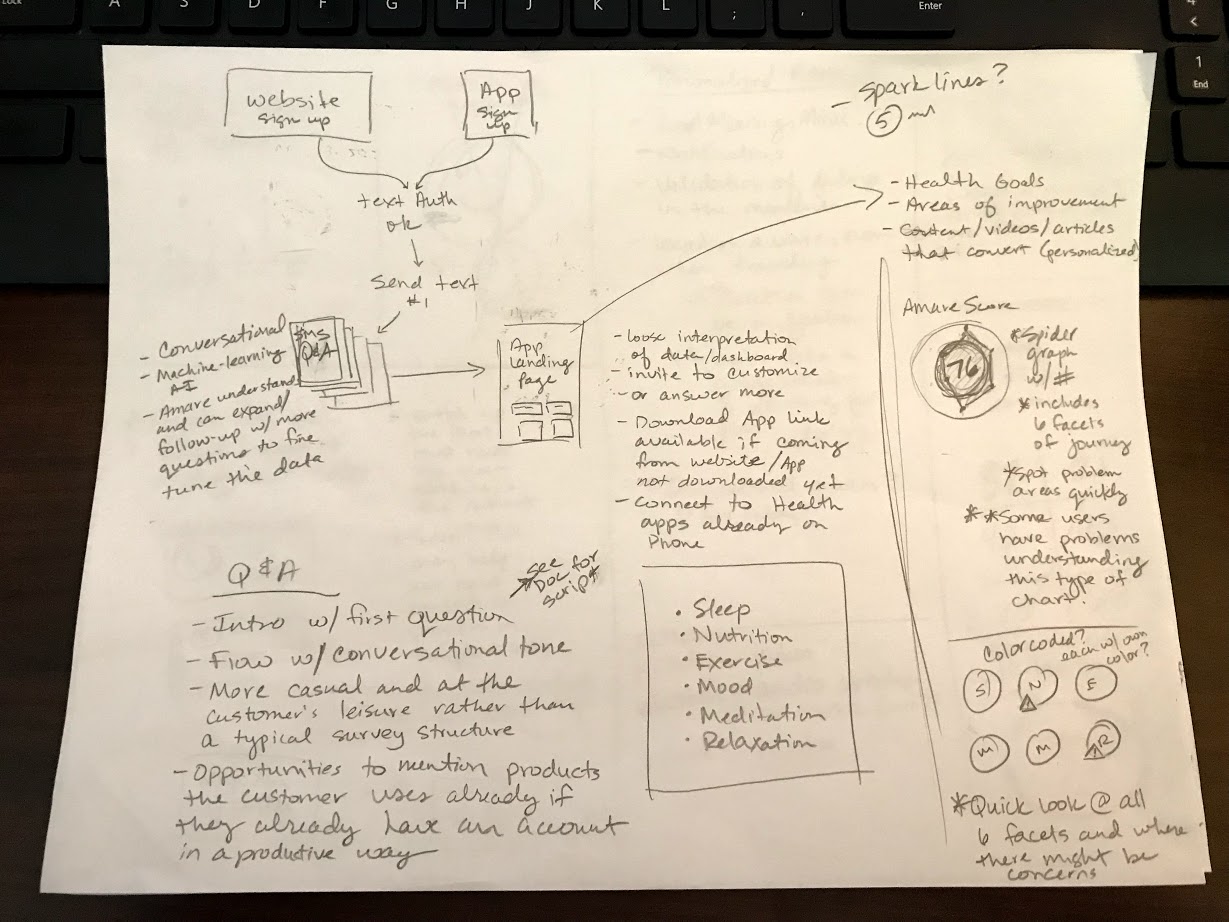 Lock
A
S
D
F
G
H
J
K
L
;
,
Enter
4
<
1
End
Website
sign up
App
sign
up
text Auth
ok
Send text
#1
- Conversational
- Machine-learning
A-I
- Amare understands
and can expand/
follow-up w/ more
questions to fine
tune the data
SMS
Q&A
App
Landing
page
- loose interpretation
of data/dashboard
- invite to customize
- or answer more
- Download App link
available if coming
from website/App
not downloaded yet
- Connect to Health
apps already on
Phone
- Sparklines?
5
- Health Goals
- Areas of improvement
- Content/videos/articles
that convert (personalized)
Amare Score
76
*Spider
graph
w/ #
* includes
6 facets
of journey
*Spot problem
areas quickly
* *Some users
have problems
understanding
this type of
chart.
Color coded?
each w/ own
color?
S
N
E
M
M
R
*Quick look @ all
6 facets and where
there might be
concerns
Q & A
*see
Doc for
script*
- Intro w/ first question
- Flow w/ conversational tone
- More casual and at the
customer's leisure rather than
a typical survey structure
- Opportunities to mention products
the customer uses already if
they already have an account
in a produtive way
• Sleep
• Nutrition
• Exercise
• Mood
• Meditation
• Relaxation